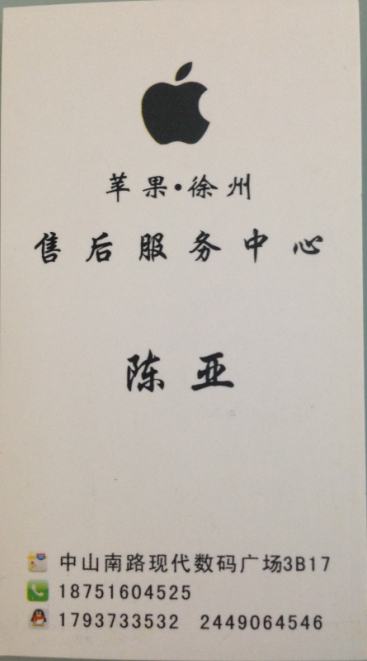 苹果·徐州
售后服务中心
陈亚
中山南路现代数码广场3B17
18751604525
1793733532 2449064546